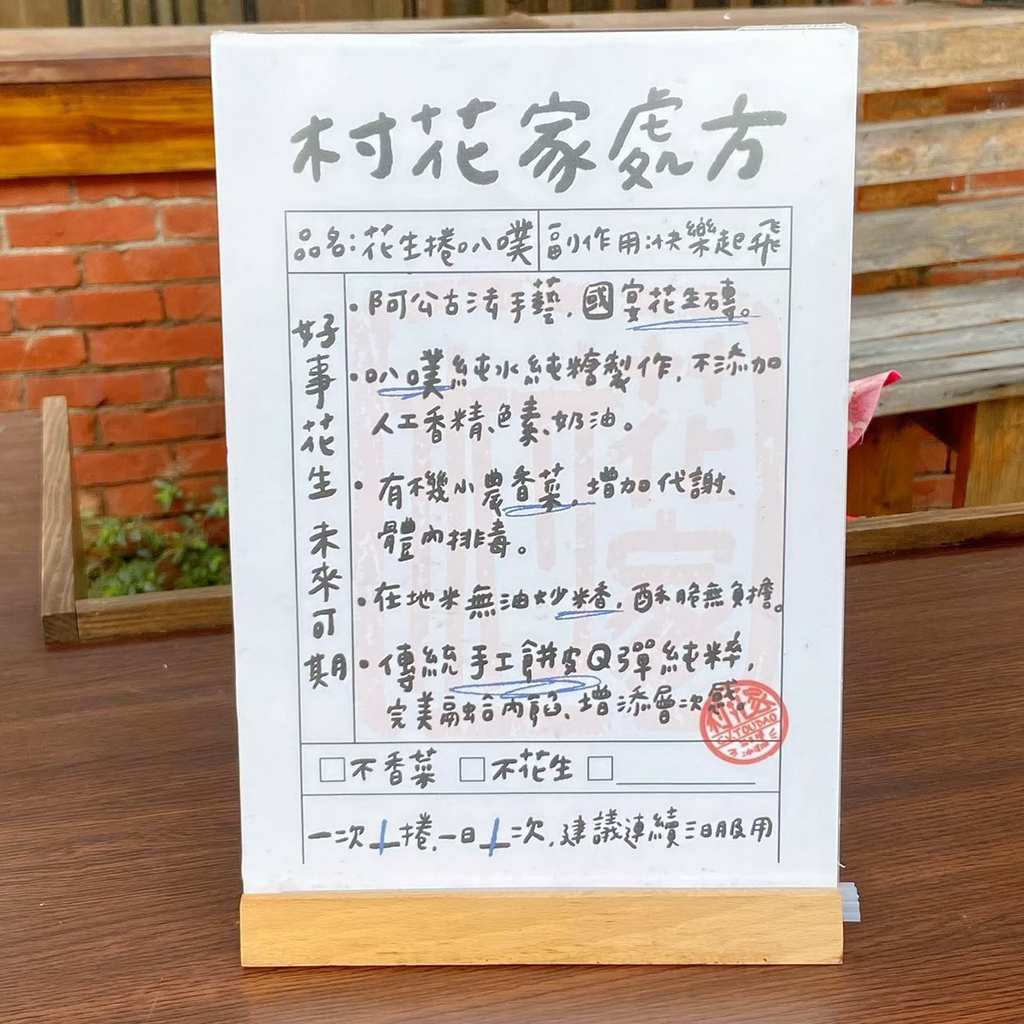 村花家處方
品名:花生捲叭噗
副作用:快樂起飛
好事花生未來可期
・阿公古法手藝,國宴花生磚。
・叭噗純水純糖製作,不添加
人工香精、色素、奶油。
・有機小農香菜。增加代謝、
體內排毒。
・在地米無油炒米香,酥脆無負擔。
・傳統手工餅皮Q彈純粹,
完美融合內餡、增添層次感。
村花家
□不香菜 □不花生 □
一次1捲,一日1次,建議連續三日服用